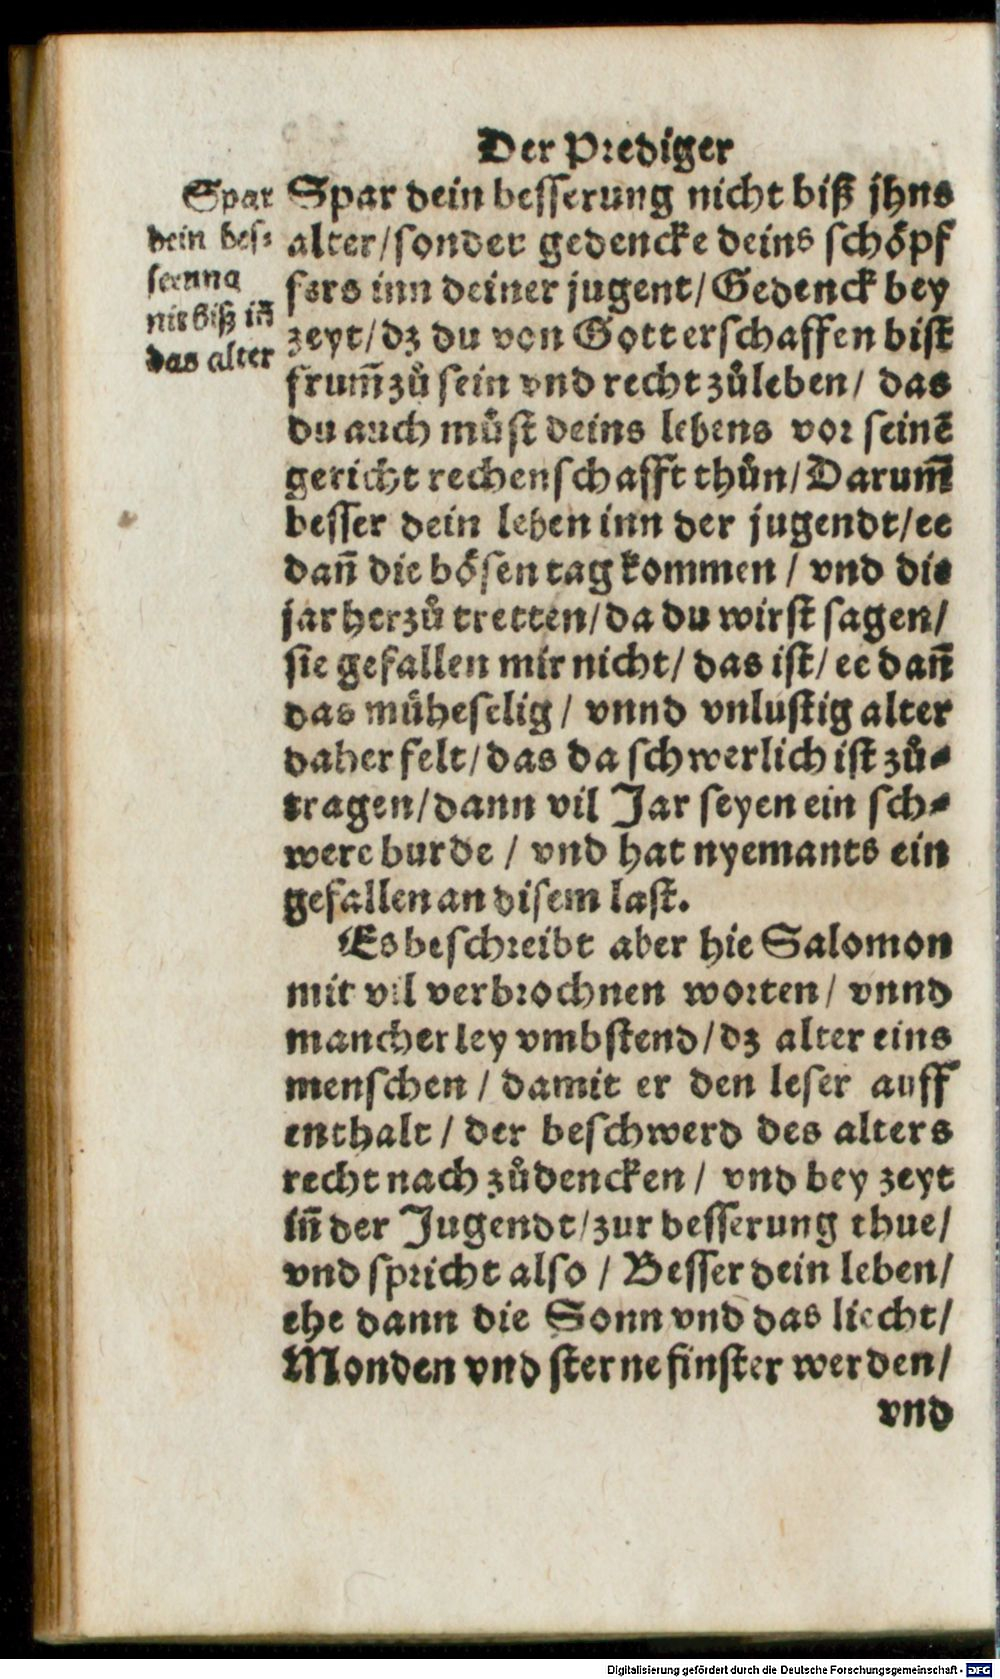 Der Prediger
Spar
dein bes⸗
serung
nit biß in̄
das alter
Spar dein besserung nicht biß jhns
alter/sonder gedencke deins schöpf
fers inn deiner jugent/Gedenck bey
zeyt/dz du von Gott erschaffen bist
frum̄ zů sein vnd recht zůleben/ das
du auch můst deins lebens vor seinē
gericht rechenschafft thůn/Darum̄
besser dein leben inn der jugendt/ee
dan̄ die bösen tag kommen / vnd die
jar herzů tretten/da du wirst sagen/
sie gefallen mir nicht/ das ist/ ee dan̄
das müheselig / vnnd vnlustig alter
daher felt/das da schwerlich ist zů⸗
tragen/dann vil Jar seyen ein sch⸗
were burde / vnd hat nyemants ein
gefallen an disem last.
Es beschreibt aber hie Salomon
mit vil verbrochnen worten/ vnnd
mancherley vmbstend/dz alter eins
menschen / damit er den leser auff
enthalt / der beschwerd des alters
recht nach zůdencken / vnd bey zeyt
in̄ der Jugendt/zur besserung thue/
vnd spricht also / Besser dein leben/
ehe dann die Sonn vnd das liecht/
Monden vnd sterne finster werden/
vnd
Digitalisierung gefördert durch die Deutsche Forschungsgemeinschaft - DFG